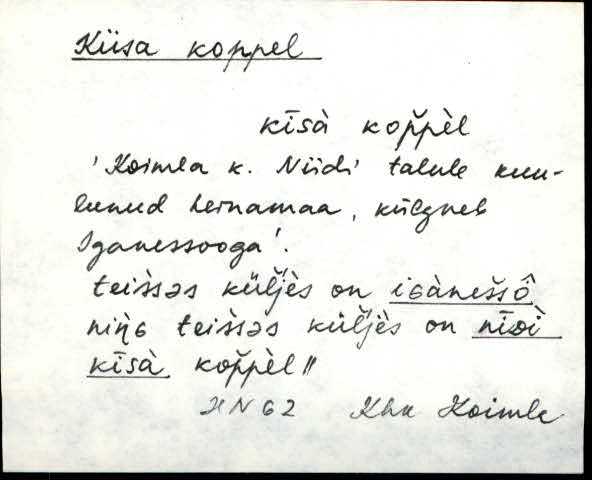 Kiisa koppel
kīsà kop̌pèl
'Koimla k. Niidi talule kuu-
lunud heinamaa, külgneb
Iganessooga'.
teìšsəs küľ̌jès on iɢànešsô
niǹɢ teìšsəs küľ̌jès on nīᴅì
kīsà kop̌pèl ||
HN 62 Khk Koimla